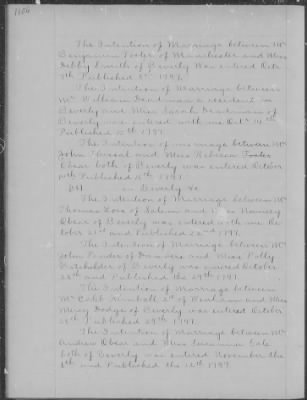 The Intention of Marriage between Mr
Benjamin Foster of Manchester and Miss
Hebby Smith of Beverly Was entered Octr
7th Published 8th 1797.
The Intention of Marriage between
Mr William a resident in
Beverly and Miss Sarah of
Beverly was entered with me Octr 14th
Published 15th 1797.
The Intention of marriage between Mr
John Thissal and Miss Rebecca Foster
Obear both of Beverly was entered October
14th Published 15th 1797.
in Beverly &c
The Intention of Marriage between Mr
Thomas of Salem and Miss
Obear of Beverly was entered with me Oc-
tober 21st and Published 22nd 1797.
The Intention of Marriage between Mr
John of Danvers and Miss Polly
of Beverly was entered October
28th and Published the 29th 1797.
The Intention of Marriage between
Mr Caleb Kimball 3d of Wenham and Miss
Mercy Dodge of Beverly was entered October
28th Published 29th 1797.
The Intention of Marriage between Mr
Andrew Obear and Miss Susanna Gale
both of Beverly was entered November the
and Published the 12th 1797.